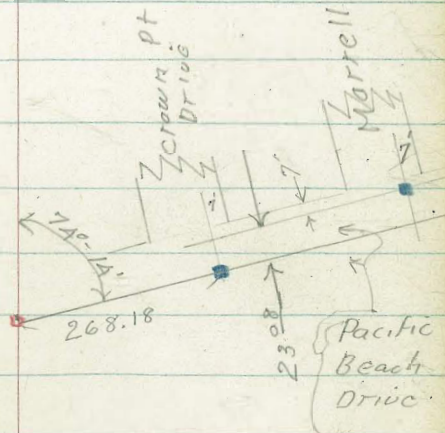 Crown Pt
Drive
Morrell
7
7-
74°-14'
268.18
23.08
Pacific
Beach
Drive